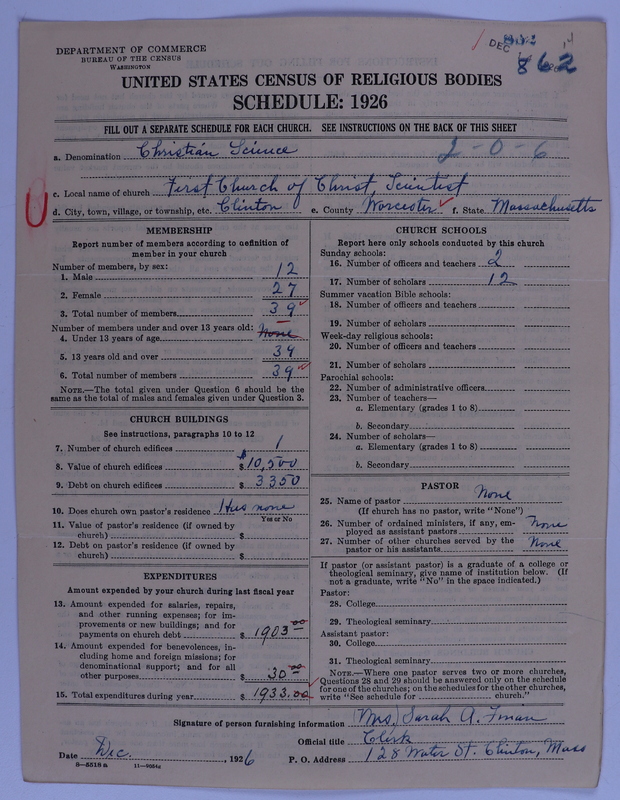 DEPARTMENT OF COMMERCE
BUREAU OF THE CENSUS
WASHINGTON
DEC
862
UNITED STATES CENSUS OF RELIGIOUS BODIES
SCHEDULE: 1926
FILL OUT A SEPARATE SCHEDULE FOR EACH CHURCH. SEE INSTRUCTIONS ON THE BACK OF THIS SHEET
a. Denomination Christian Science 2-0-6
c. Local name of church First Church of Christ, Scientist
d. City, town, village, or township, etc. Clinton e. County Worcester f. State Massachusetts
MEMBERSHIP
Report number of members according to definition of
member in your church
Number of members, by sex:
1. Male 12
2. Female 27
3. Total number of members 39
Number of members under and over 13 years old:
4. Under 13 years of age None
5. 13 years old and over 39
6. Total number of members 39
NOTE.—The total given under Question 6 should be
same as the total of males and females given under Question 3.
CHURCH BUILDINGS
See instructions, paragraphs 10 to 12
7. Number of church edifices 1
8. Value of church edifices $10,500
9. Debt on church edifices $3350
10. Does church own pastor's residence Has none
Yes or No
11. Value of pastor's residence (if owned by
church) $
12. Debt on pastor's residence (if owned by
church) $
EXPENDITURES
Amount expended by your church during last fiscal year
13. Amount expended for salaries, repairs,
and other running expenses; for im-
provements or new buildings; and for
payments on church debt $1903.00
14. Amount expended for benevolences, in-
cluding home and foreign missions; for
denominational support; and for all
other purposes $30.00
15. Total expenditures during year $1933.00
CHURCH SCHOOLS
Report here only schools conducted by this church
Sunday schools:
16. Number of officers and teachers 2
17. Number of scholars 12
Summer vacation Bible schools:
18. Number of officers and teachers
19. Number of scholars
Week-day religious schools:
20. Number of officers and teachers
21. Number of scholars
Parochial schools:
22. Number of administrative officers
23. Number of teachers—
a. Elementary (grades 1 to 8)
b. Secondary
24. Number of scholars—
a. Elementary (grades 1 to 8)
b. Secondary
PASTOR
25. Name of pastor None
(If church has no pastor, write "None")
26. Number of ordained ministers, if any, em-
ployed as assistant pastors None
27. Number of other churches served by the
pastor or his assistants None
If pastor (or assistant pastor) is a graduate of a college or
theological seminary, give name of institution below. (If
not a graduate, write "No" in the space indicated.)
Pastor:
28. College
29. Theological seminary
Assistant pastor:
30. College
31. Theological seminary
NOTE.—Where one pastor serves two or more churches,
Questions 28 and 29 should be answered only on the schedule
for one of the churches; on the schedules for the other churches,
write "See schedule for church."
Signature of person furnishing information Mrs. Sarah A.
Official title Clerk
Date Dec. , 1926 P. O. Address 128 Water St. Clinton, Mass
S-5518 a 11-9054c